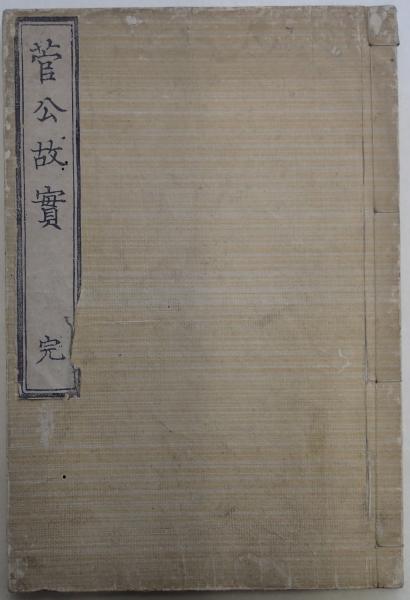 菅公故實 完